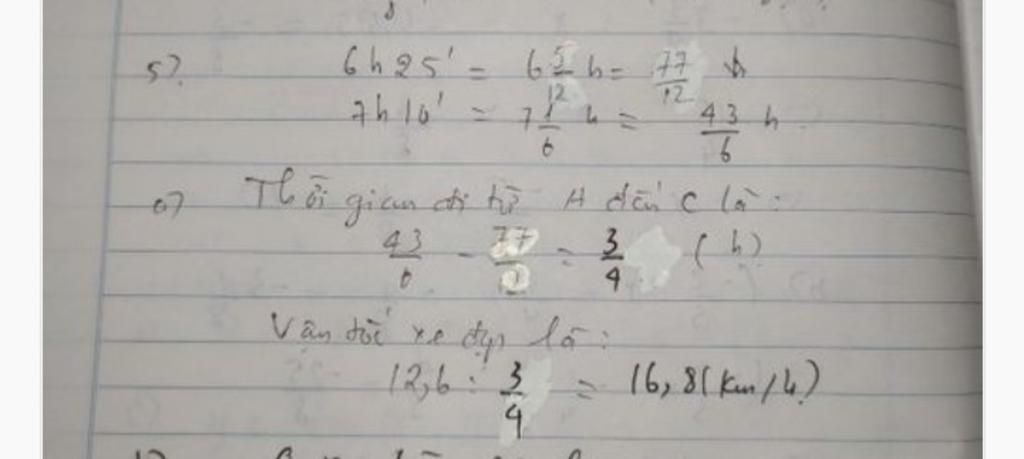 5). 6h25' = 6 5/12 h = 77/12 h
7h10' = 7 1/6 h = 43/6 h
a) Thời gian đi từ A đến C là:
43/6 - 77/12 = 3/4 (h)
Vận tốc xe đạp là:
12,6 : 3/4 = 16,8 (km/h)